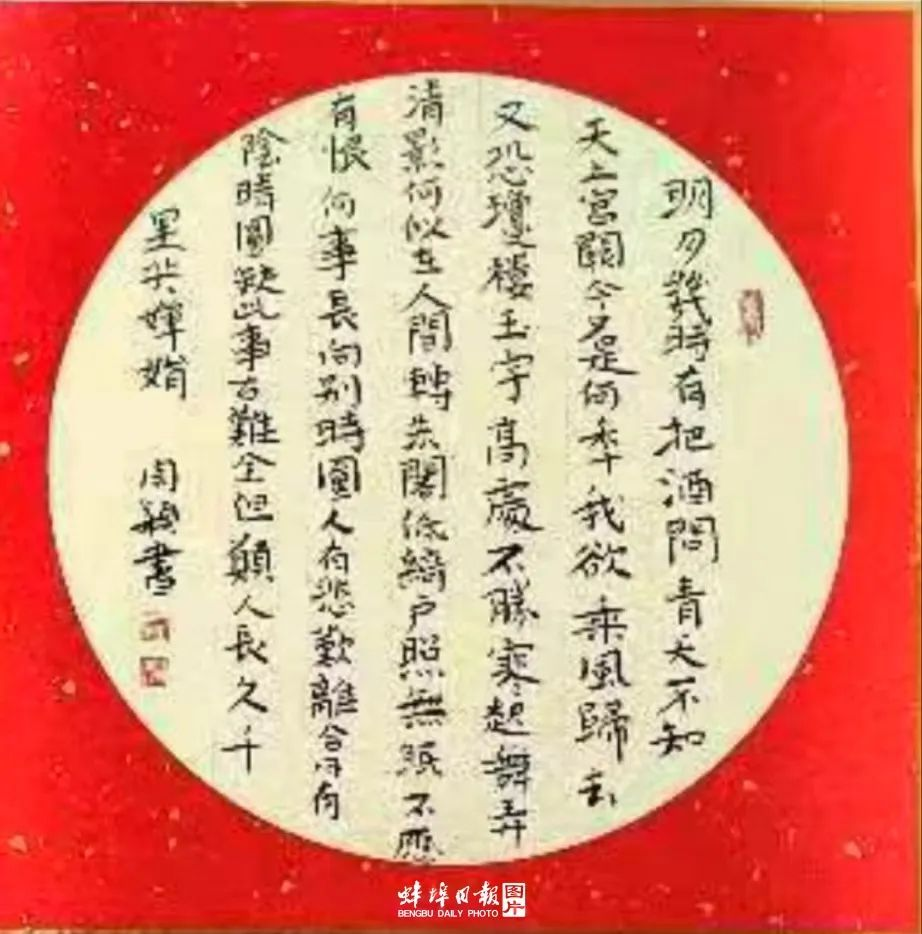 明月幾時有把酒問青天不知
天上宮闕今夕是何年我欲乘風歸去
又恐瓊樓玉宇高處不勝寒起舞弄
清影何似在人間轉朱閣低綺戶照無眠不應
有恨何事長向别時圓人有悲歡離合月有
陰時圓缺此事古難全但願人長久千
里共嬋娟 周穎書
蚌埠日報 图片
BENGBU DAILY PHOTO